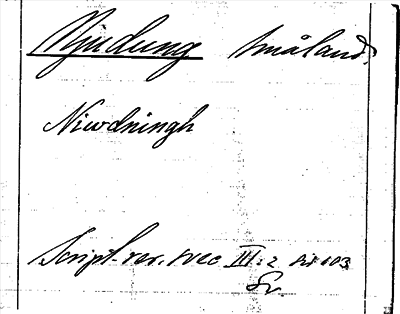 Njudung Småland.
Niwdningh
Script. rer. svec III:2 sid 103
Sv.